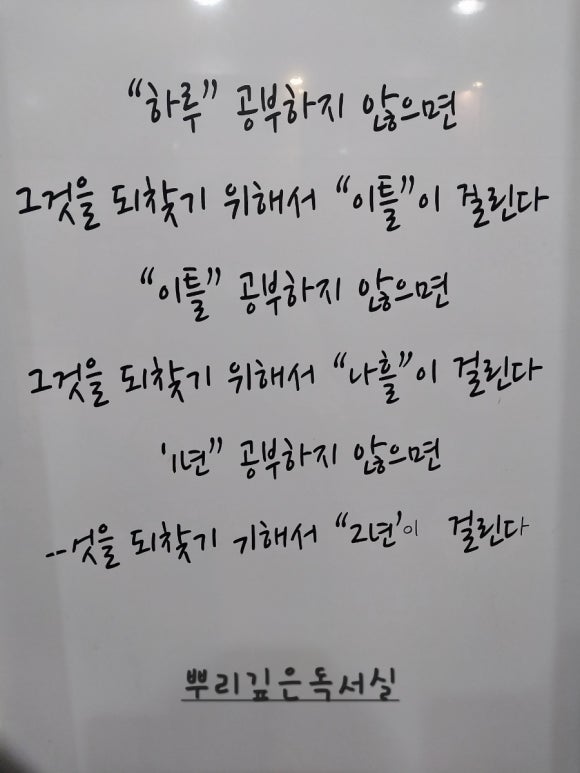 “하루” 공부하지 않으면
그것을 되찾기 위해서 “이틀”이 걸린다
“이틀” 공부하지 않으면
그것을 되찾기 위해서 “나흘”이 걸린다
'1년” 공부하지 않으면
되찾기 기해서 “2년'이 걸린다
뿌리깊은독서실